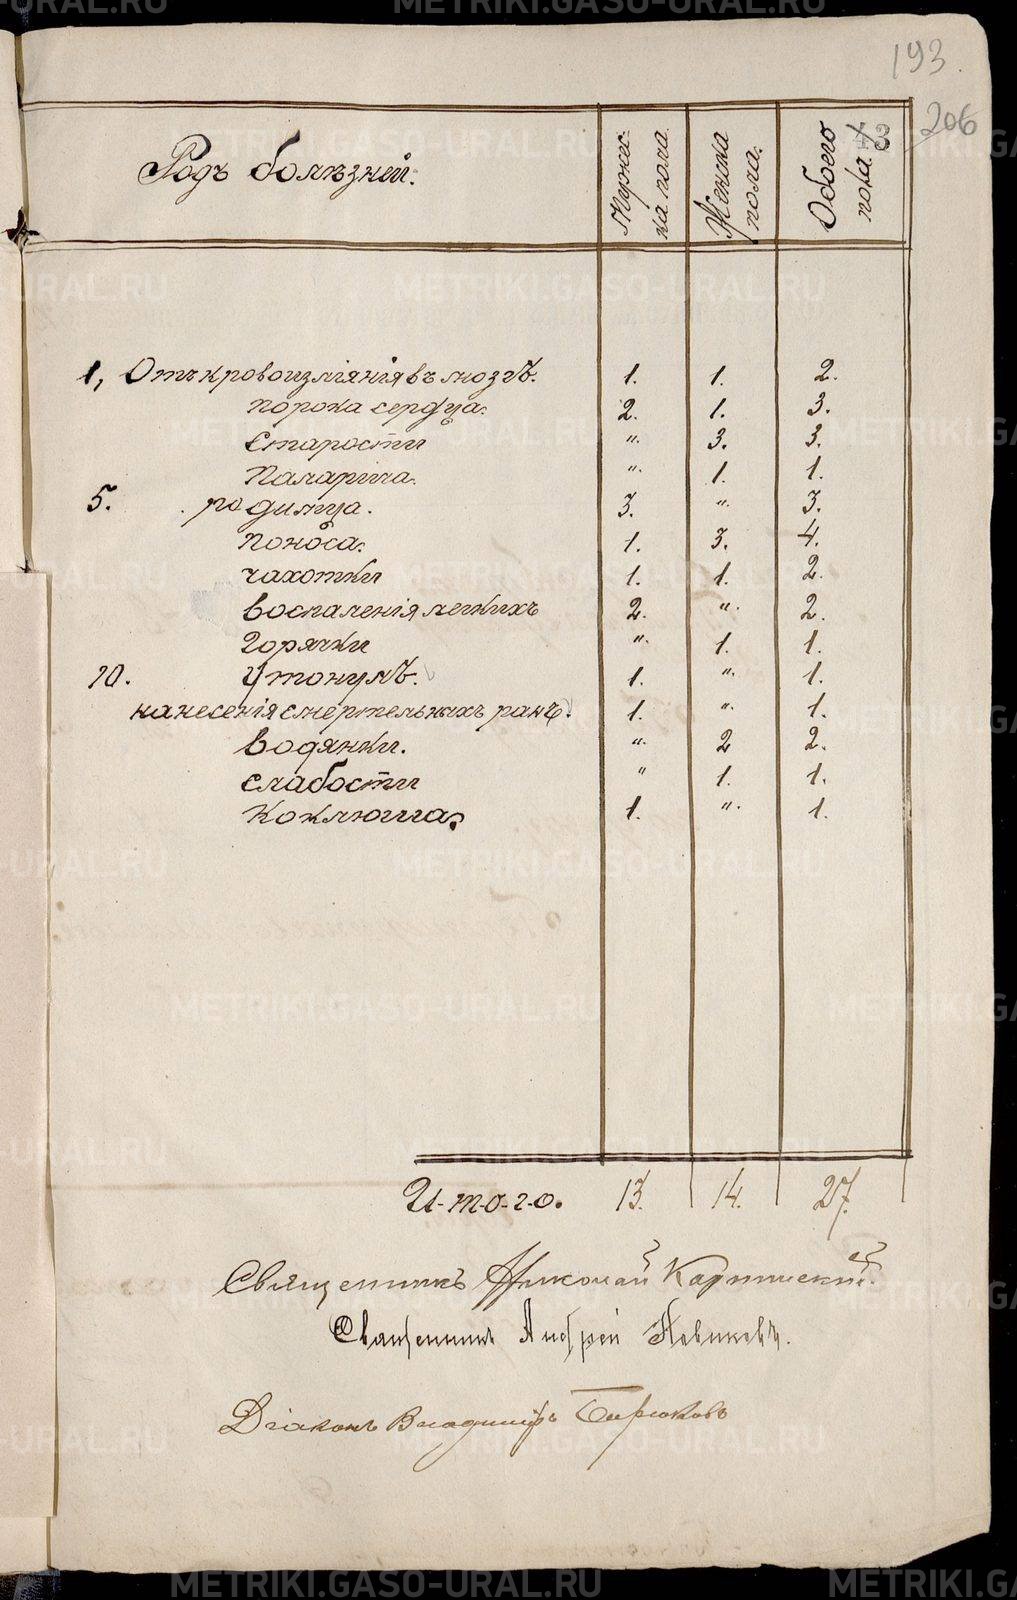 193.
206
Родъ болѣзней.
Мужес-
ка пола.
Женска
пола.
Обоего
пола.
43
1, Отъ кровоизліянія въ мозгѣ. 1. 1. 2.
порока сердца. 2. 1. 3.
Старости " 3. 3.
Паларича. " 1. 1.
5. родимца. 3. " 3.
поноса. 1. 3. 4.
чахотки 1. 1. 2.
воспаленія легкихъ 2. " 2.
Горячки " 1. 1.
10. Утонулъ. 1. " 1.
нанесенія смертельныхъ ранъ. 1. " 1.
водянки. " 2 2.
слабости " 1. 1.
Коклюша. 1. " 1.
И-т-о-г-о. 13. 14. 27.
Священникъ Николай Карпинскій.
Священникъ Андрей Новиковъ.
Діаконъ Владиміръ Бирюковъ
METRIKI.GASO-URAL.RU